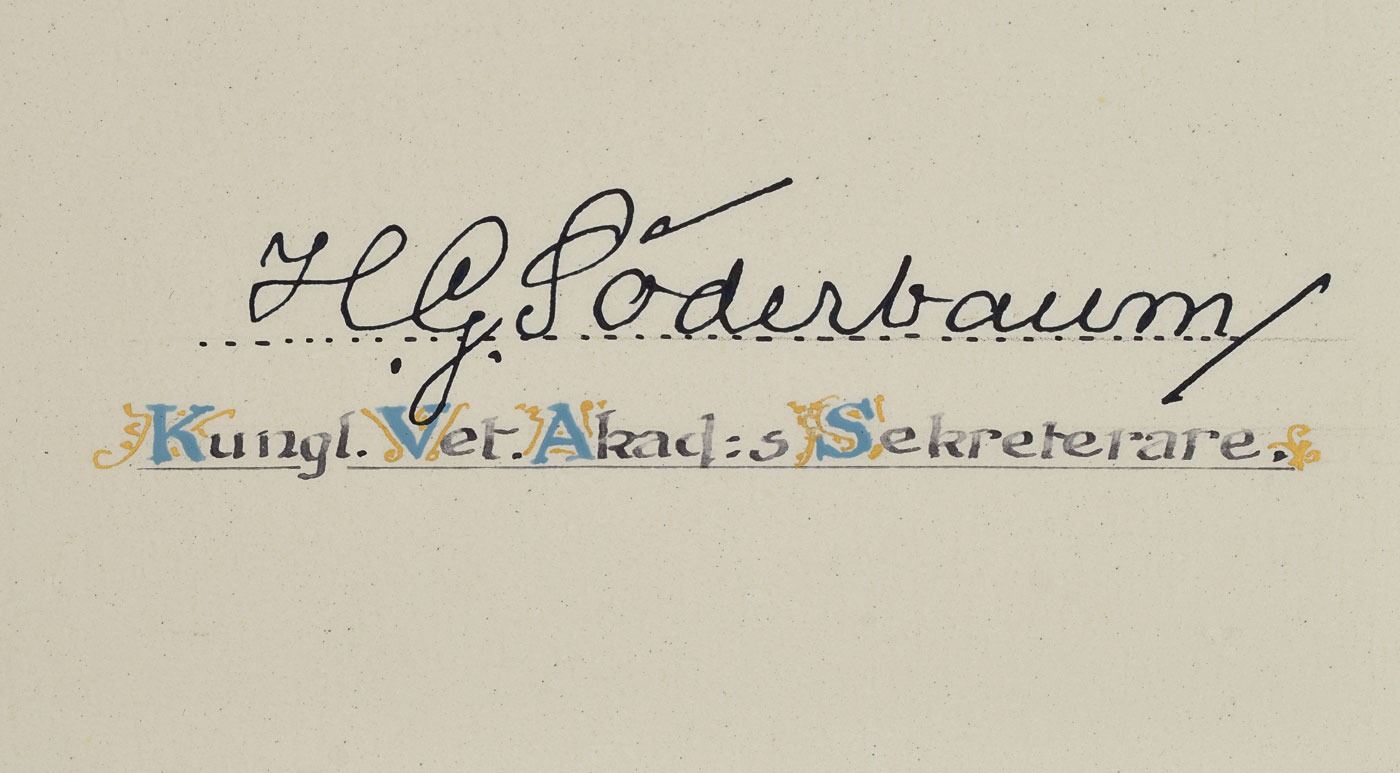 H. G. Söderbaum
Kungl. Vet. Akad:s Sekreterare.